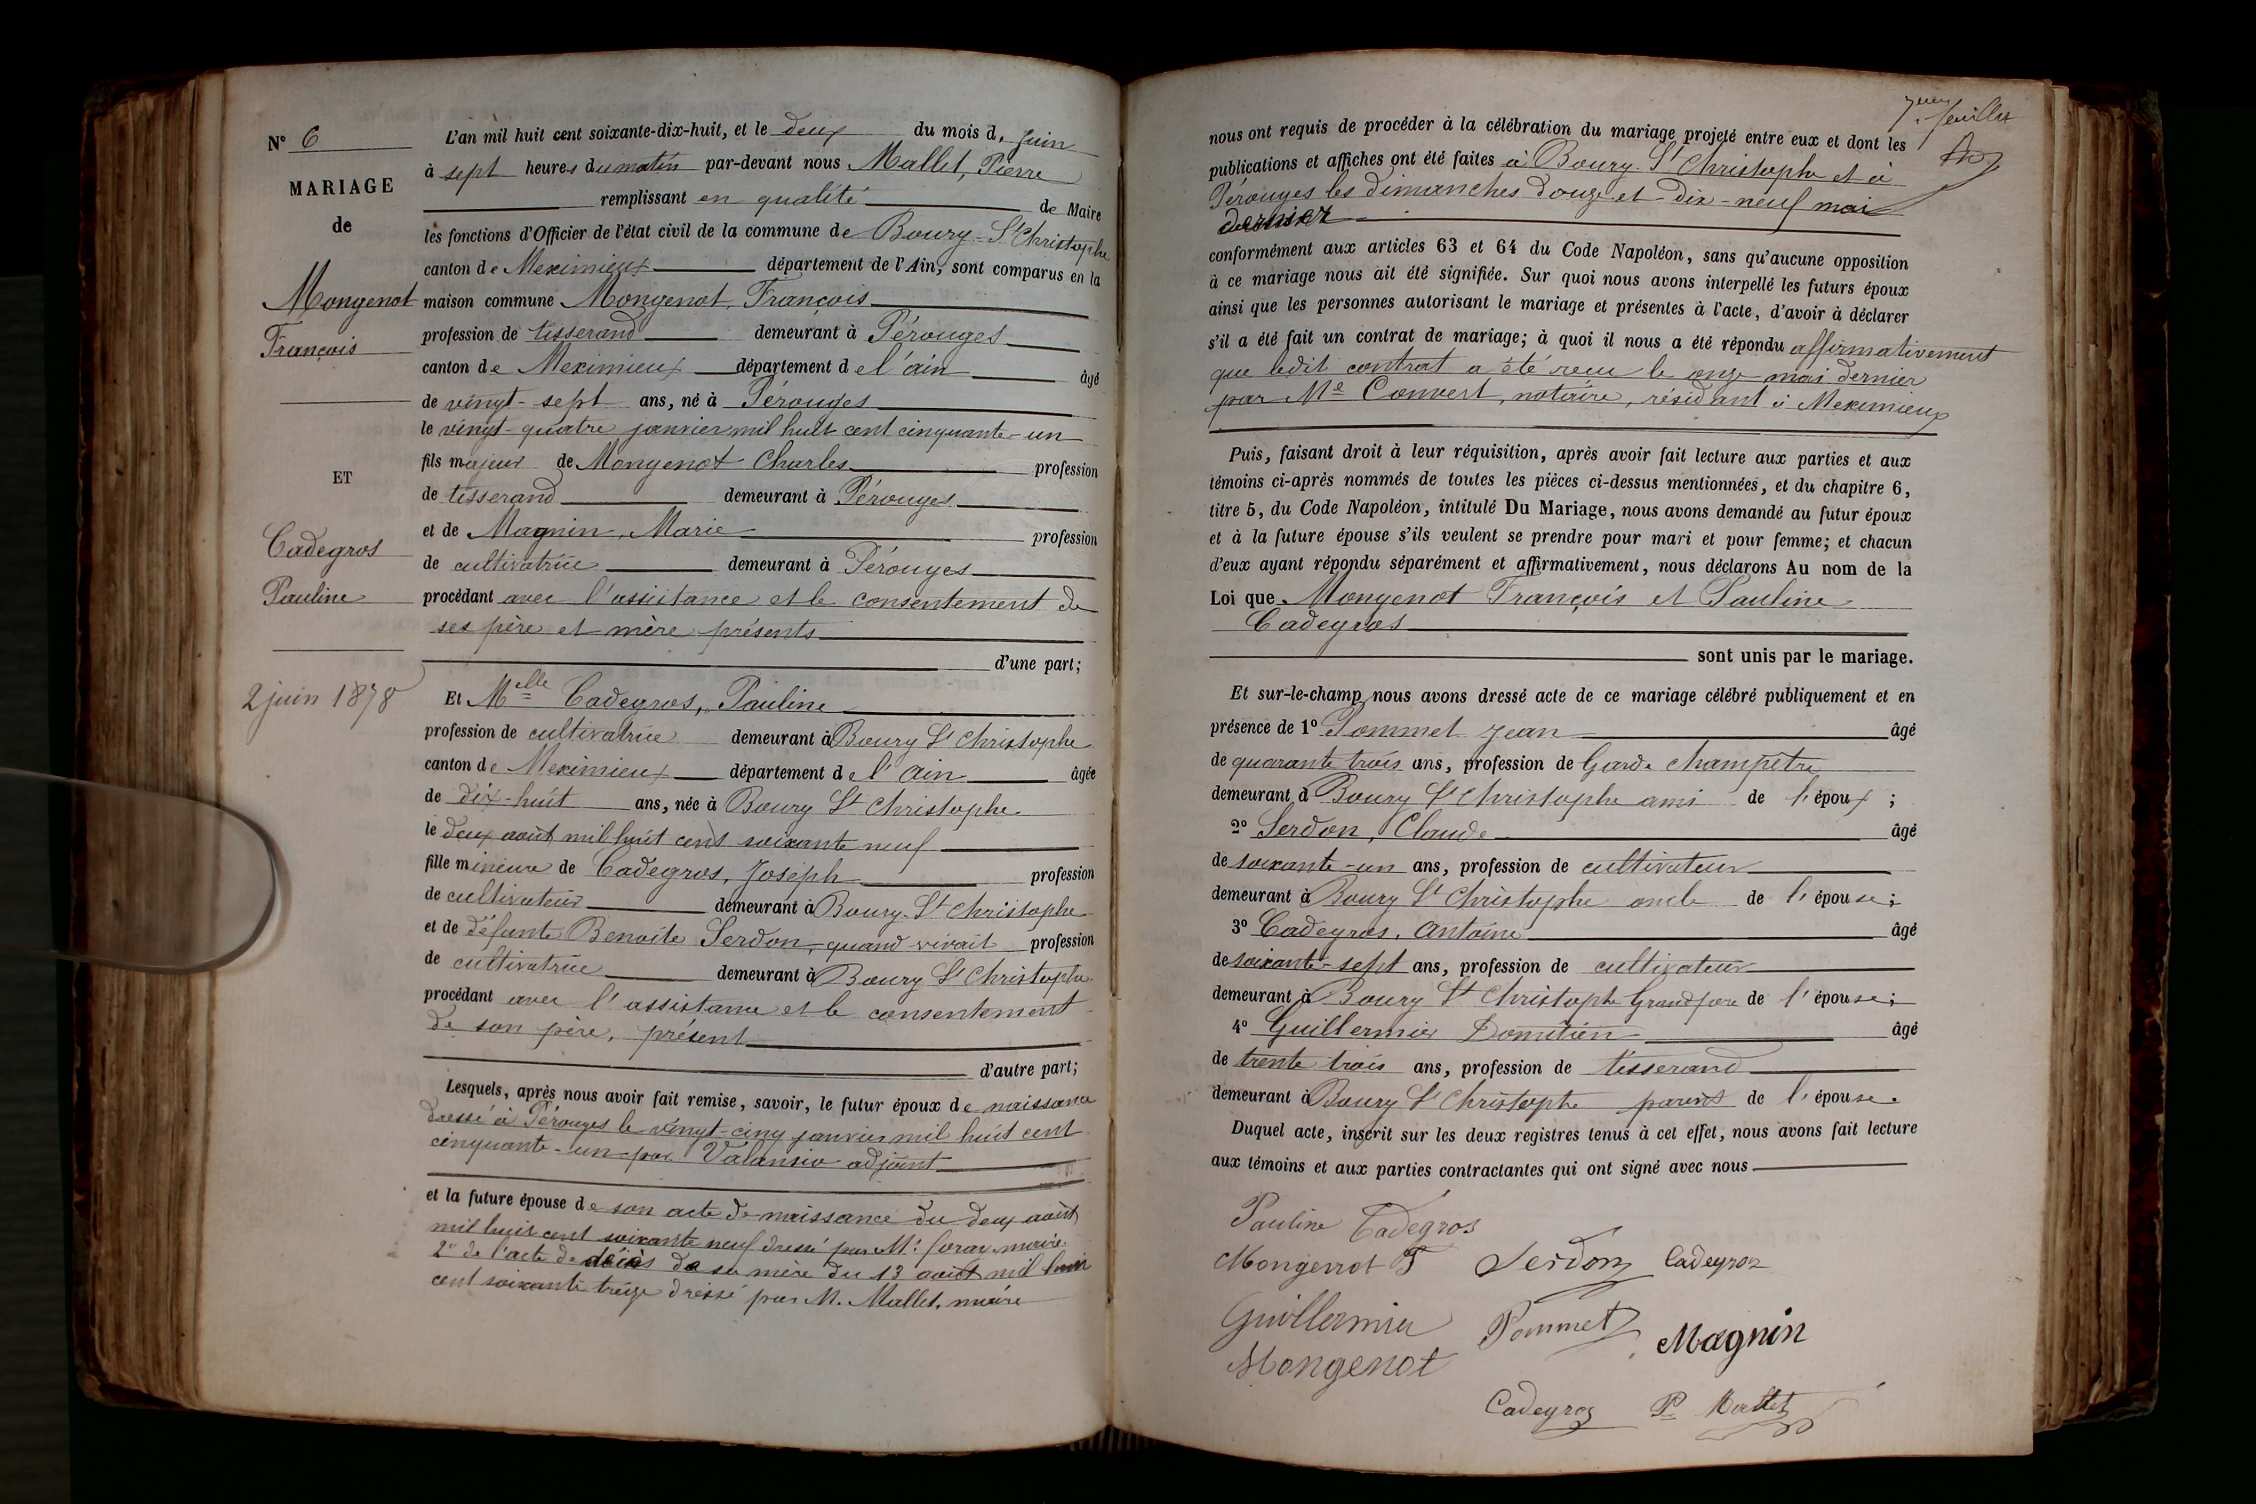 N° 6
MARIAGE
de
Mongenot
François
ET
Cadegros
Pauline
2 juin 1878
L'an mil huit cent soixante-dix-huit, et le deux du mois de Juin
à sept heures du matin par-devant nous Mallet, Pierre
remplissant en qualité de Maire
les fonctions d'Officier de l'état civil de la commune de Boury-St Christophe
canton de Meximieux département de l'Ain, sont comparus en la
maison commune Mongenot, François
profession de tisserand demeurant à Pérouges
canton de Meximieux département de l'ain âgé
de vingt-sept ans, né à Pérouges
le vingt-quatre janvier mil huit cent cinquante-un
fils majeur de Mongenot Charles profession
de tisserand demeurant à Pérouges
et de Magnin, Marie profession
de cultivatrice demeurant à Pérouges
procédant avec l'assistance et le consentement de
ses père et mère présents
d'une part;
Et Melle Cadegros, Pauline
profession de cultivatrice demeurant à Boury St Christophe
canton de Meximieux département de l'ain âgée
de dix-huit ans, née à Boury St Christophe
le deux août mil huit cent soixante neuf
fille mineure de Cadegros, Joseph profession
de cultivateur demeurant à Boury-St Christophe
et de défunte Benoîte Serdon, quand vivait profession
de cultivatrice demeurant à Boury St Christophe
procédant avec l'assistance et le consentement
de son père, présent
d'autre part;
Lesquels, après nous avoir fait remise, savoir, le futur époux de naissance
dressé à Pérouges le vingt-cinq janvier mil huit cent
cinquante-un par Valansio adjoint
et la future épouse de son acte de naissance du deux août
mil huit cent soixante neuf dressé par Mr maire
2° de l'acte de décès de sa mère du 13 août mil huit
cent soixante treize dressé par M. Mallet, maire
7eme feuillet
nous ont requis de procéder à la célébration du mariage projeté entre eux et dont les
publications et affiches ont été faites à Boury-St Christophe et à
Pérouges les dimanches douze et dix-neuf mai
dernier
conformément aux articles 63 et 64 du Code Napoléon, sans qu'aucune opposition
à ce mariage nous ait été signifiée. Sur quoi nous avons interpellé les futurs époux
ainsi que les personnes autorisant le mariage et présentes à l'acte, d'avoir à déclarer
s'il a été fait un contrat de mariage; à quoi il nous a été répondu affirmativement
que ledit contrat a été reçu le onze mai dernier
par Me Convert, notaire, résidant à Meximieux
Puis, faisant droit à leur réquisition, après avoir fait lecture aux parties et aux
témoins ci-après nommés de toutes les pièces ci-dessus mentionnées, et du chapitre 6,
titre 5, du Code Napoléon, intitulé Du Mariage, nous avons demandé au futur époux
et à la future épouse s'ils veulent se prendre pour mari et pour femme; et chacun
d'eux ayant répondu séparément et affirmativement, nous déclarons Au nom de la
Loi que Mongenot François et Pauline
Cadegros
sont unis par le mariage.
Et sur-le-champ nous avons dressé acte de ce mariage célébré publiquement et en
présence de 1° Pommet Jean âgé
de quarante trois ans, profession de Garde champêtre
demeurant à Boury St Christophe ami de l'époux;
2° Serdon, Claude âgé
de soixante-un ans, profession de cultivateur
demeurant à Boury St Christophe oncle de l'épouse;
3° Cadegros, Antoine âgé
de soixante-sept ans, profession de cultivateur
demeurant à Boury St Christophe Grandpère de l'épouse;
4° Guillermier Domitien âgé
de trente trois ans, profession de tisserand
demeurant à Boury St Christophe parent de l'épouse.
Duquel acte, inscrit sur les deux registres tenus à cet effet, nous avons fait lecture
aux témoins et aux parties contractantes qui ont signé avec nous
Pauline Cadegros
Mongenot F Serdon Cadegros
Guillermier Pommet Magnin
Mongenot
Cadegros P. Mallet